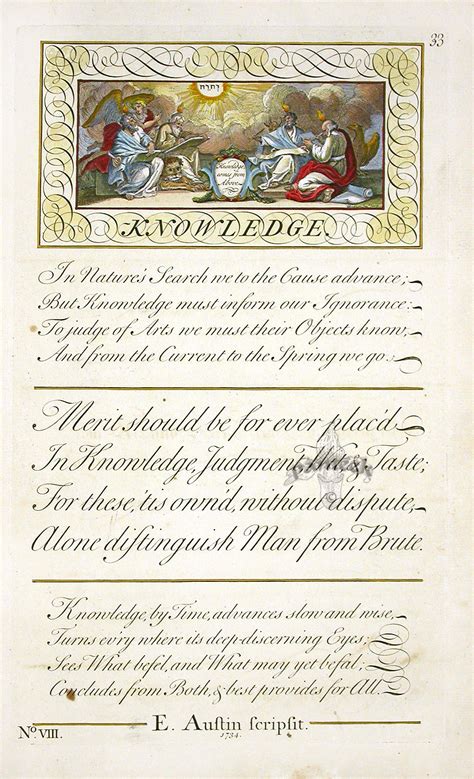 33
Knowledge
comes from
Above.
KNOWLEDGE.
In Nature's Search we to the Cause advance;
But Knowledge must inform our Ignorance:
To judge of Arts we must their Objects know,
And from the Current to the Spring we go.
Merit should be for ever plac'd
In Knowledge, Judgment, Wit, & Taste;
For these, 'tis own'd, without dispute,
Alone diſtinguish Man from Brute.
Knowledge, by Time, advances slow and wise,
Turns ev'ry where its deep-discerning Eyes;
Sees What befel, and What may yet befal,
Concludes from Both, & best provides for All.
E. Auſtin ſcripſit.
1734.
No. VIII.